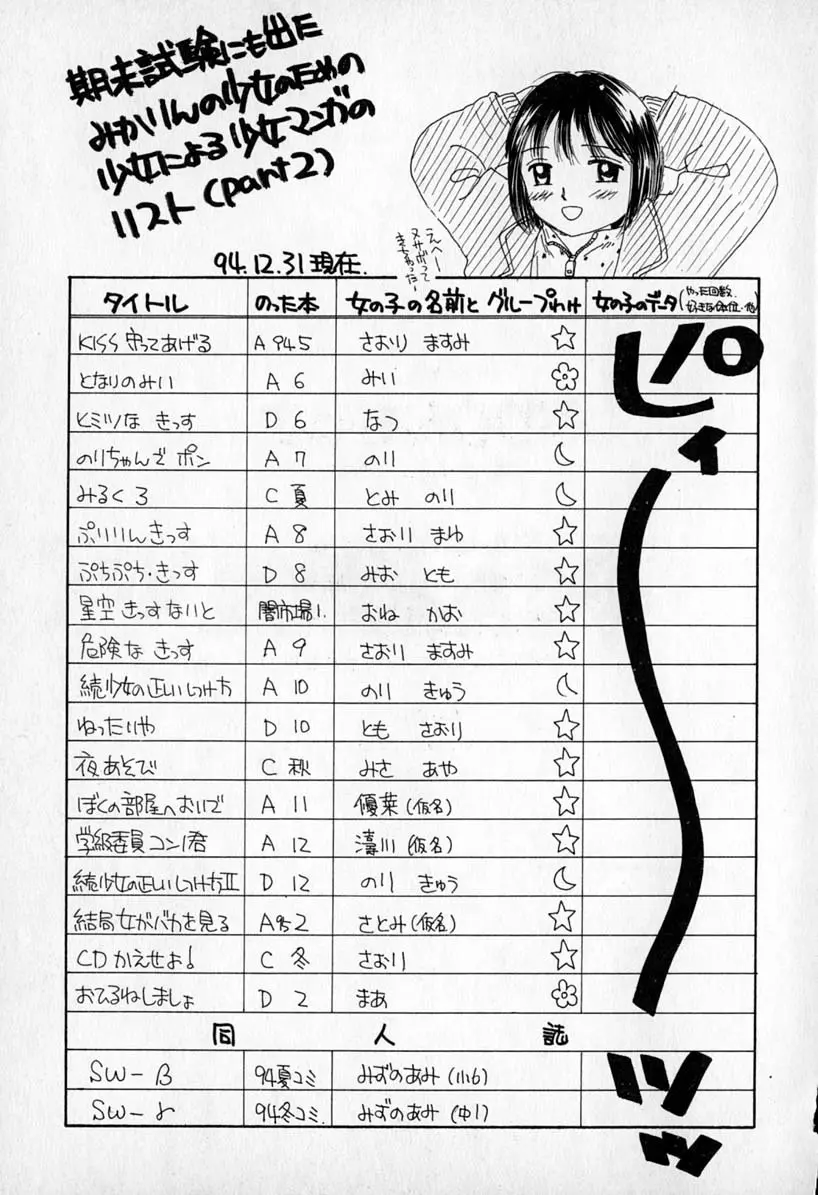 期末試験にも出た
みかりんの少女のための
少女による少女マンガの
リスト(part2)
94.12.31現在.
タイトル のった本 女の子の名前と グループわけ 女の子のデータ(やった回数.好きな体位・他)
KISS守ってあげる A 94 5 さおり ますみ ☆
となりのみい A 6 みい
ヒミツな きっす D 6 なつ ☆
のりちゃんでポン A 7 のり
みるくろ C 夏 とみ のり
ぷりりんきっす A 8 さおり まゆ ☆
ぷちぷち・きっす D 8 みお とも ☆
星空きっすないと 闇市場1. おね かお ☆
危険な きっす A 9 さおり ますみ ☆
続少女の正しいしつけ方 A 10 のり きゅう
ねったいや D 10 とも さおり ☆
夜あそび C 秋 みさ あや ☆
ぼくの部屋へおいで A 11 優菜(仮名) ☆
学級委員コンノ君 A 12 (仮名) ☆
続少女の正しいしつけ方II D 12 のり きゅう
結局女がバカを見る A 95 2 さとみ(仮名) ☆
CDかえせよ! C 冬 さおり ☆
おひるねしましょ D 2 まあ
同人誌
SW-β 94夏コミ みずのあみ(小6)
SW-γ 94冬コミ. みずのあみ(中1)
ピィーーッッ